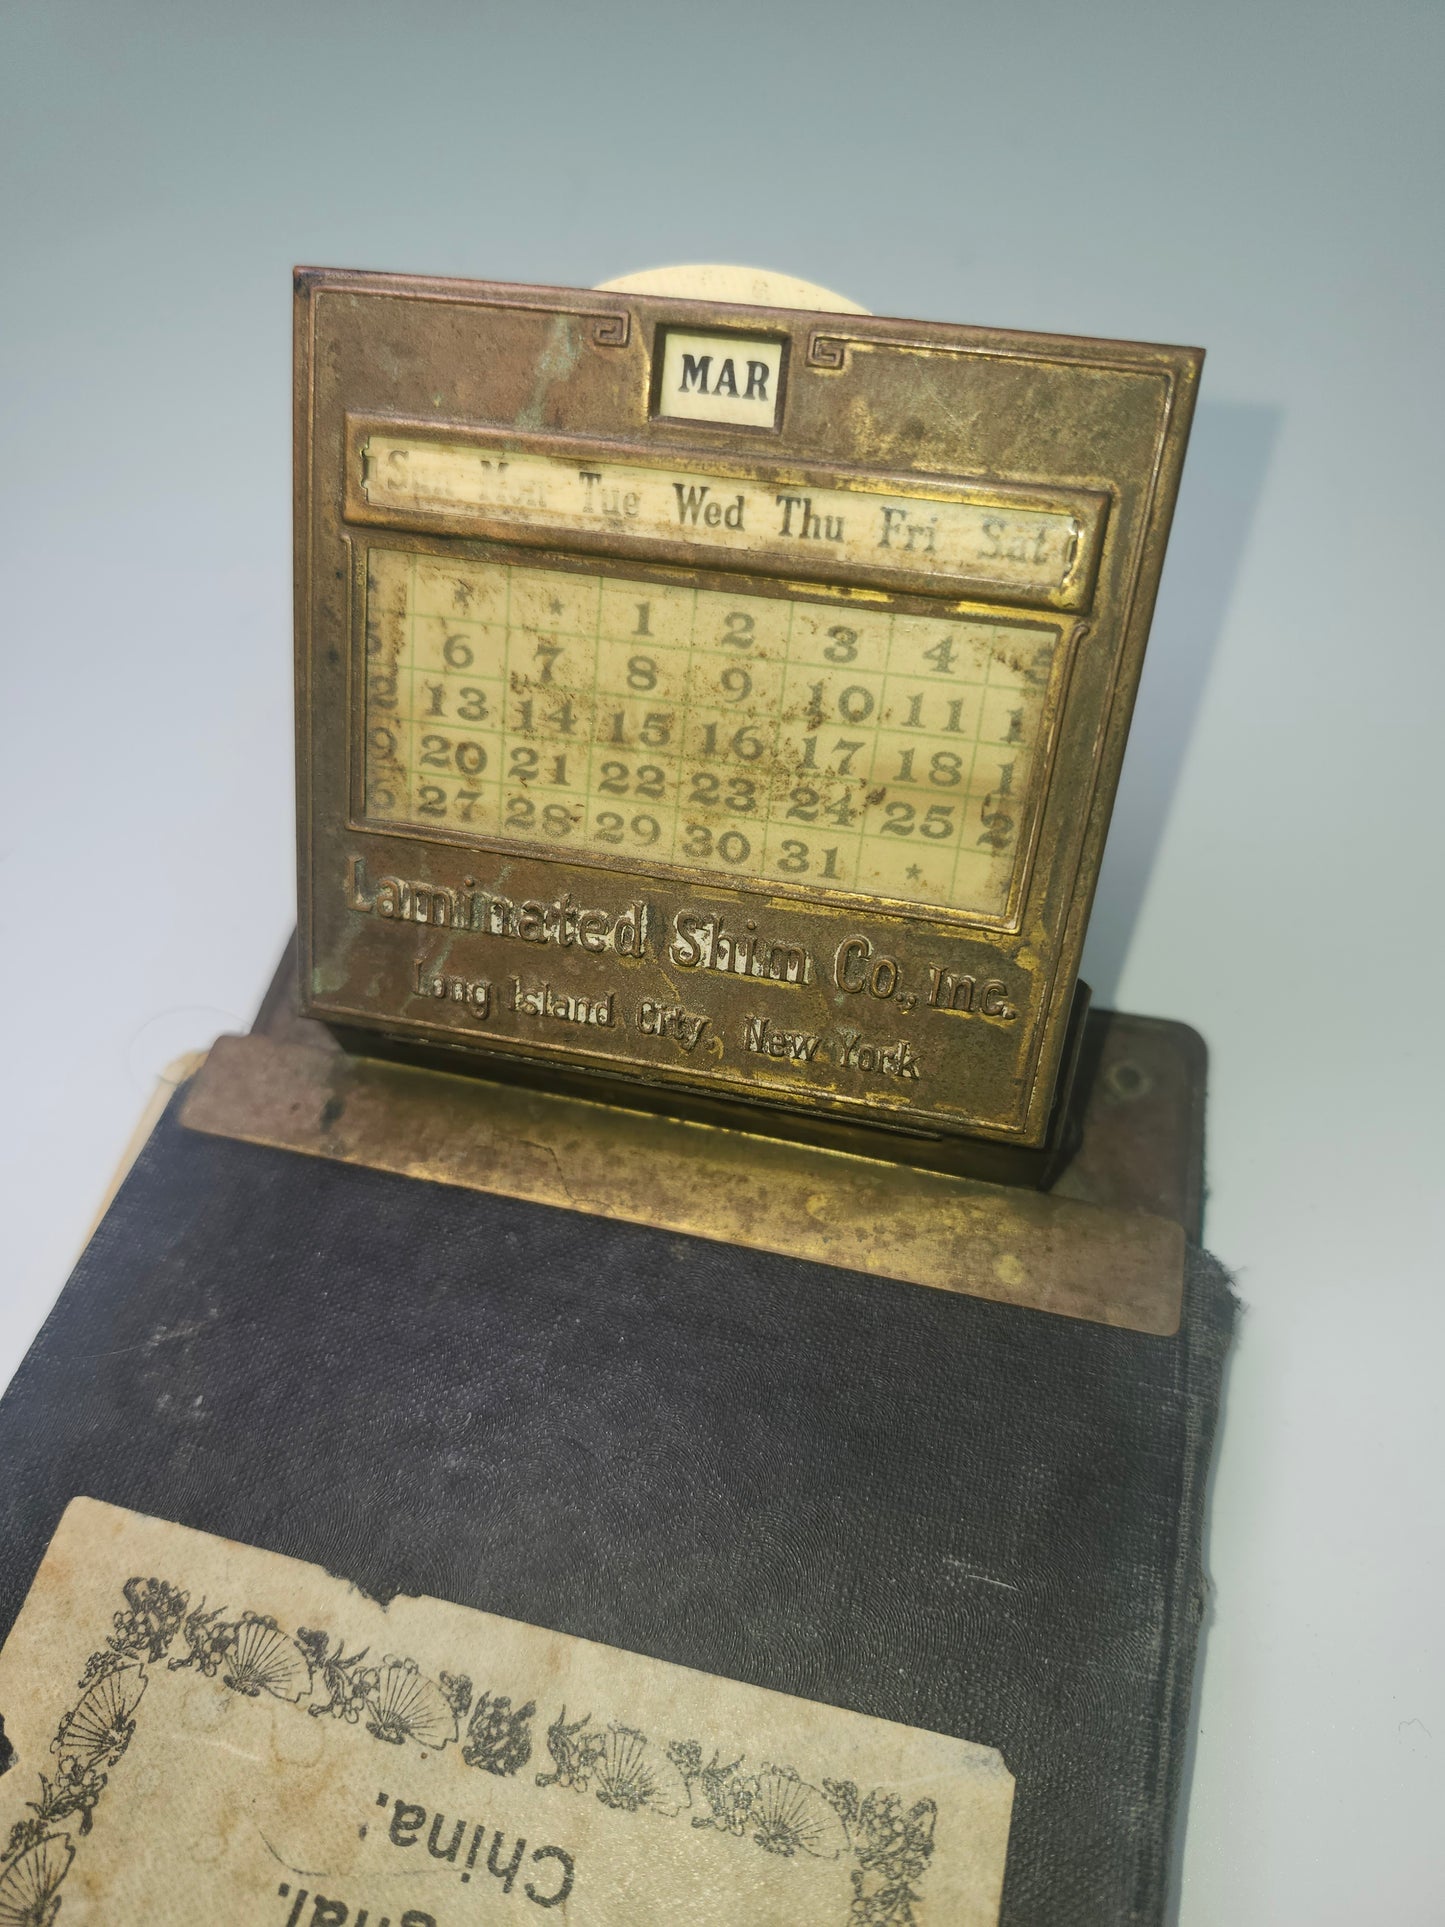 MAR
Sun Mon Tue Wed Thu Fri Sat
* * 1 2 3 4 5
6 7 8 9 10 11 1
2 13 14 15 16 17 18 1
9 20 21 22 23 24 25 2
6 27 28 29 30 31 *
Laminated Shim Co., Inc.
Long Island City, New York
China.